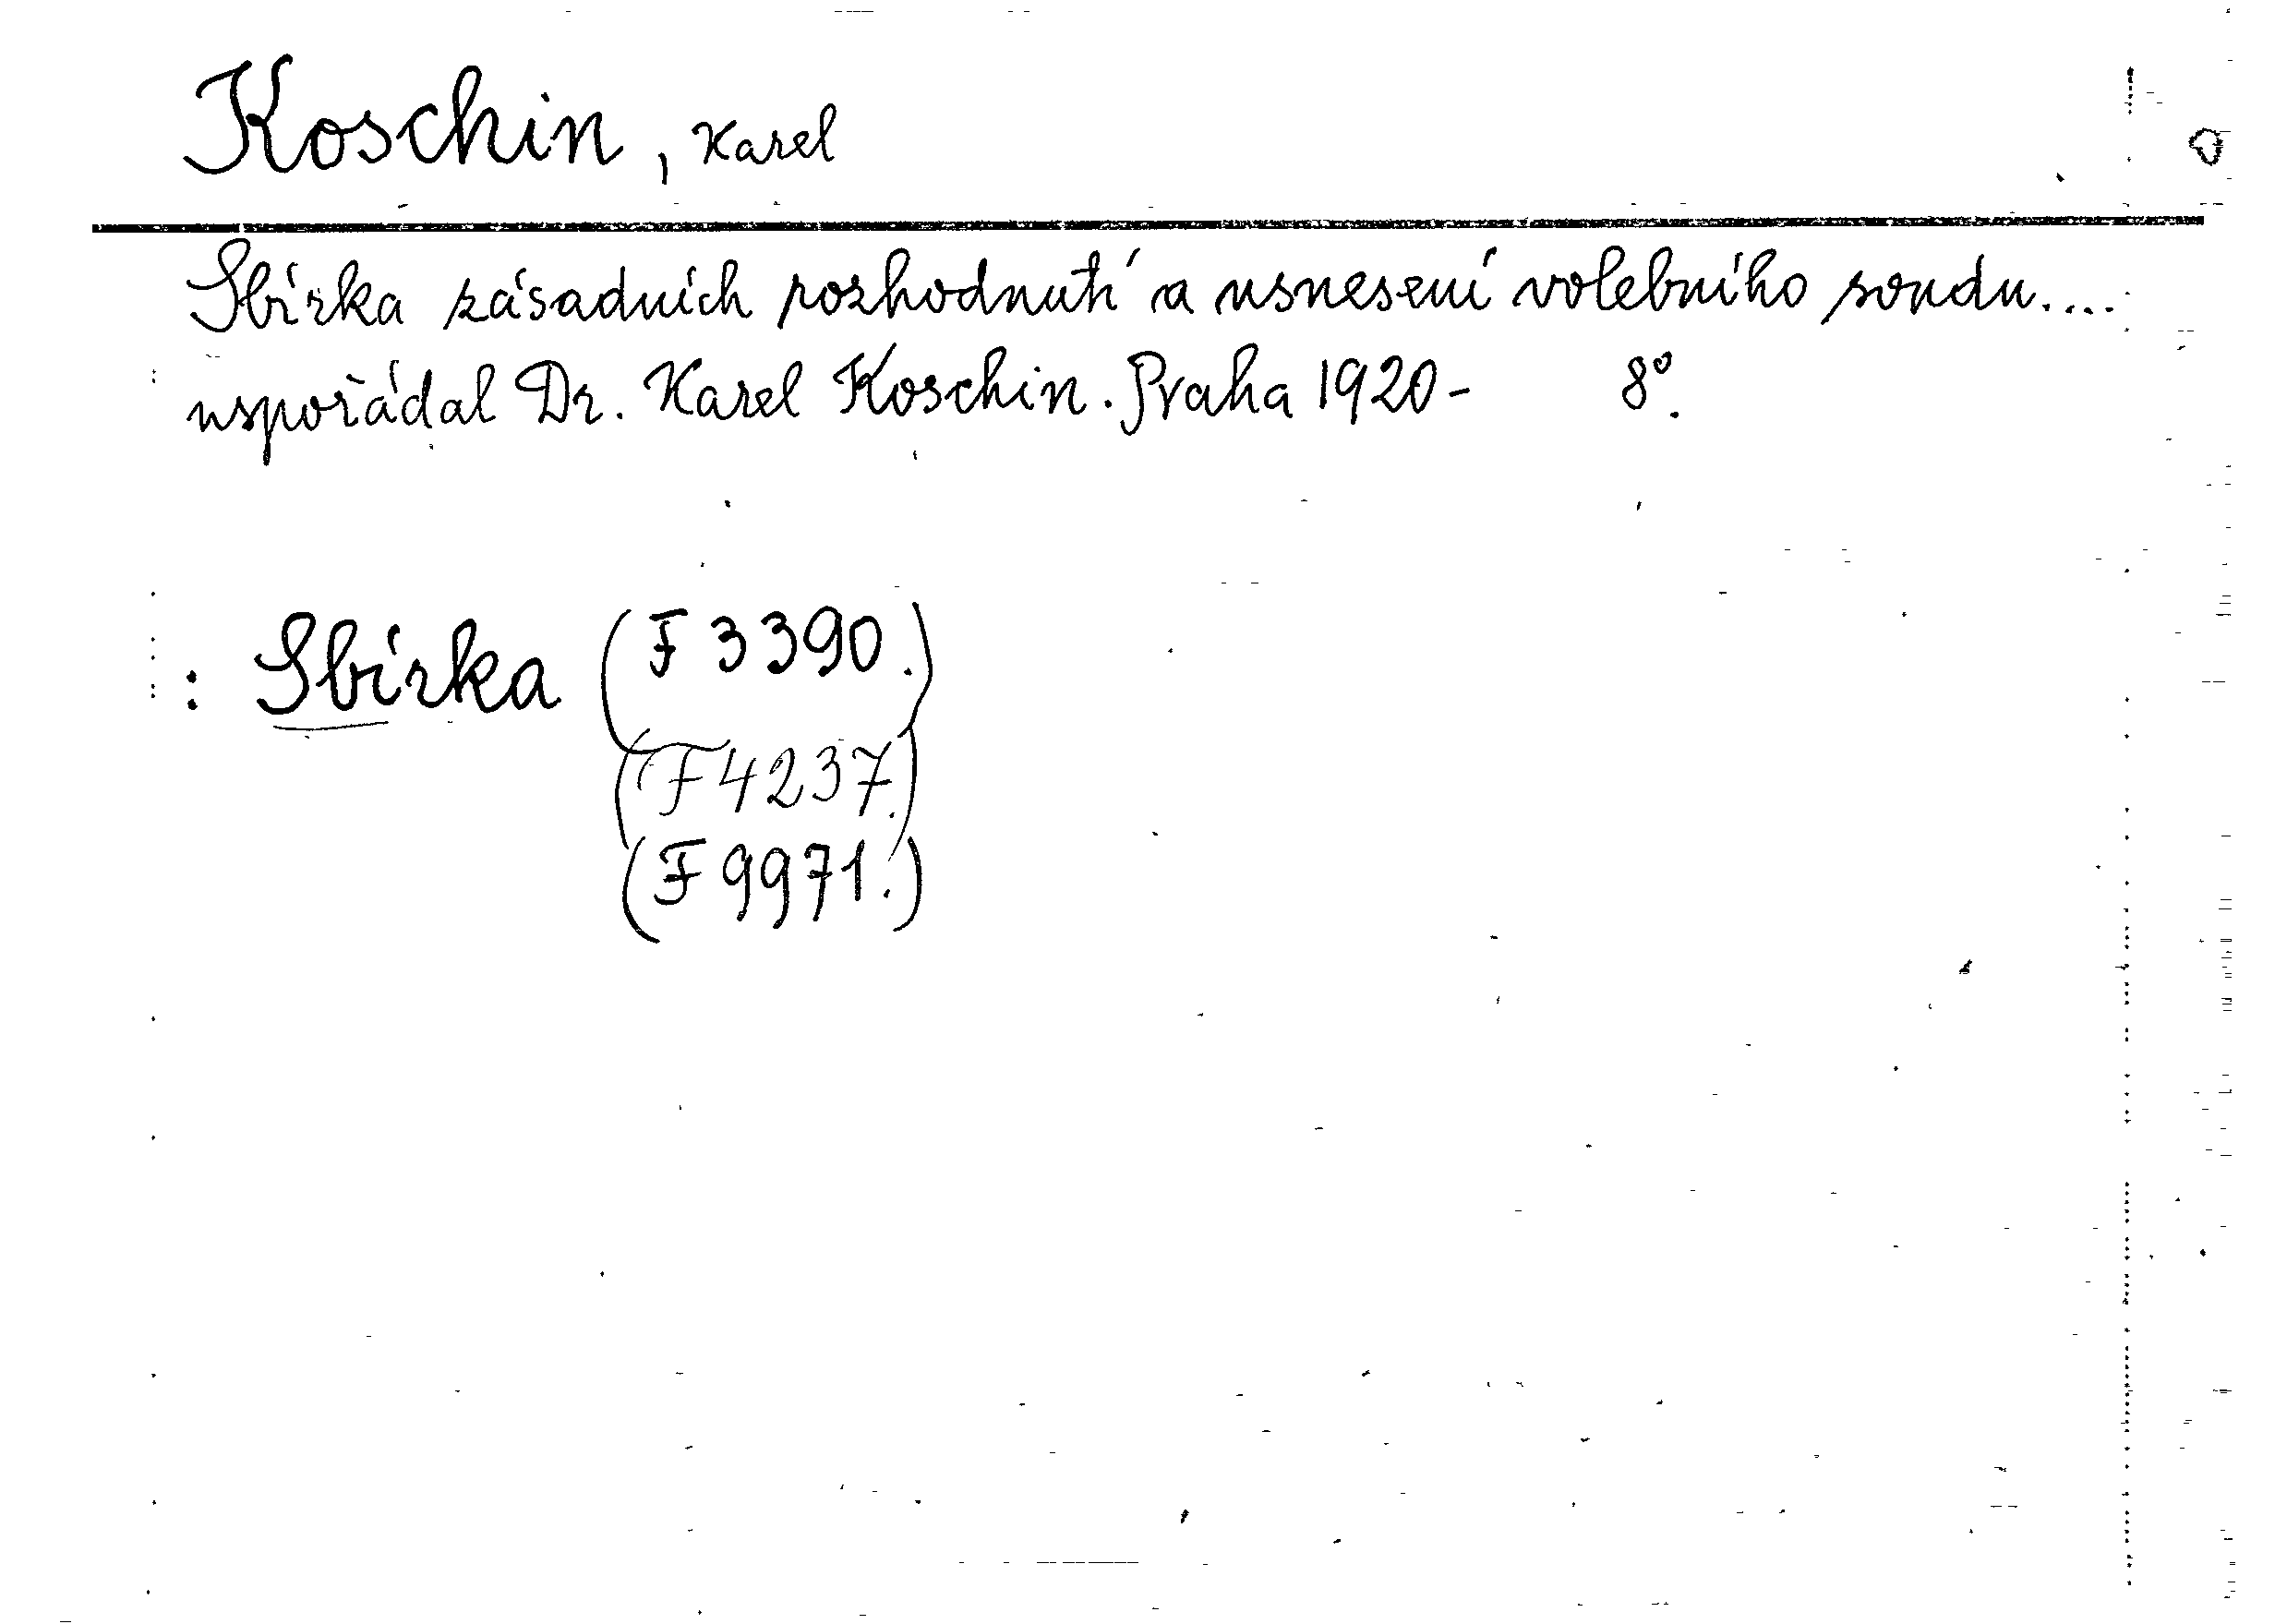 Koschin, Karel
Sbírka zásadních rozhodnutí a usnesení volebního soudu....
uspořádal Dr. Karel Koschin. Praha 1920- 8°.
: Sbírka (F 3390.)
(F 4237.)
(F 9971.)